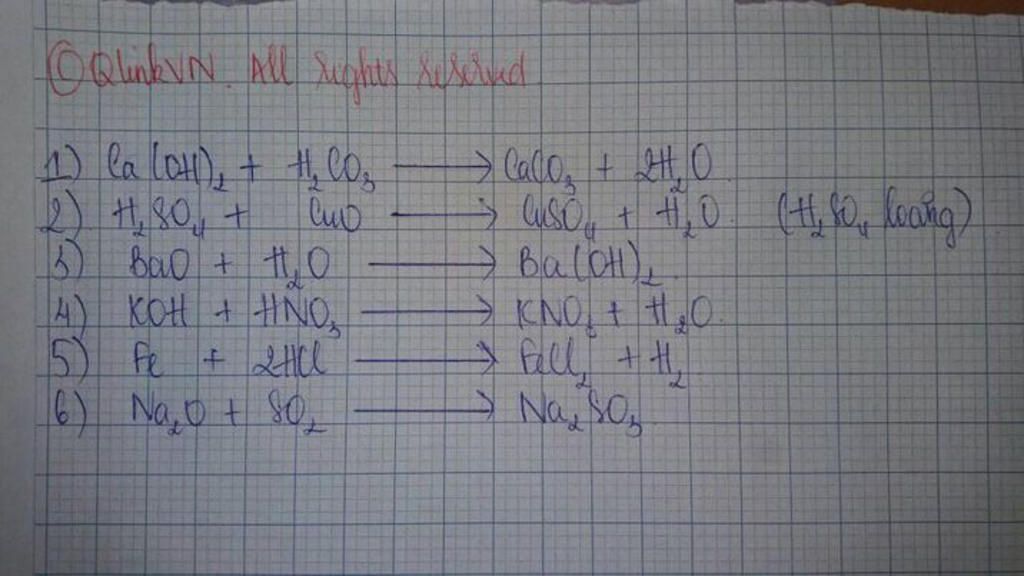 © QlinkVN. All rights reserved
1) Ca(OH)₂ + H₂CO₃ ⟶ CaCO₃ + 2H₂O.
2) H₂SO₄ + CuO ⟶ CuSO₄ + H₂O. (H₂SO₄ loãng)
3) BaO + H₂O ⟶ Ba(OH)₂.
4) KOH + HNO₃ ⟶ KNO₃ + H₂O.
5) Fe + 2HCl ⟶ FeCl₂ + H₂
6) Na₂O + SO₂ ⟶ Na₂SO₃